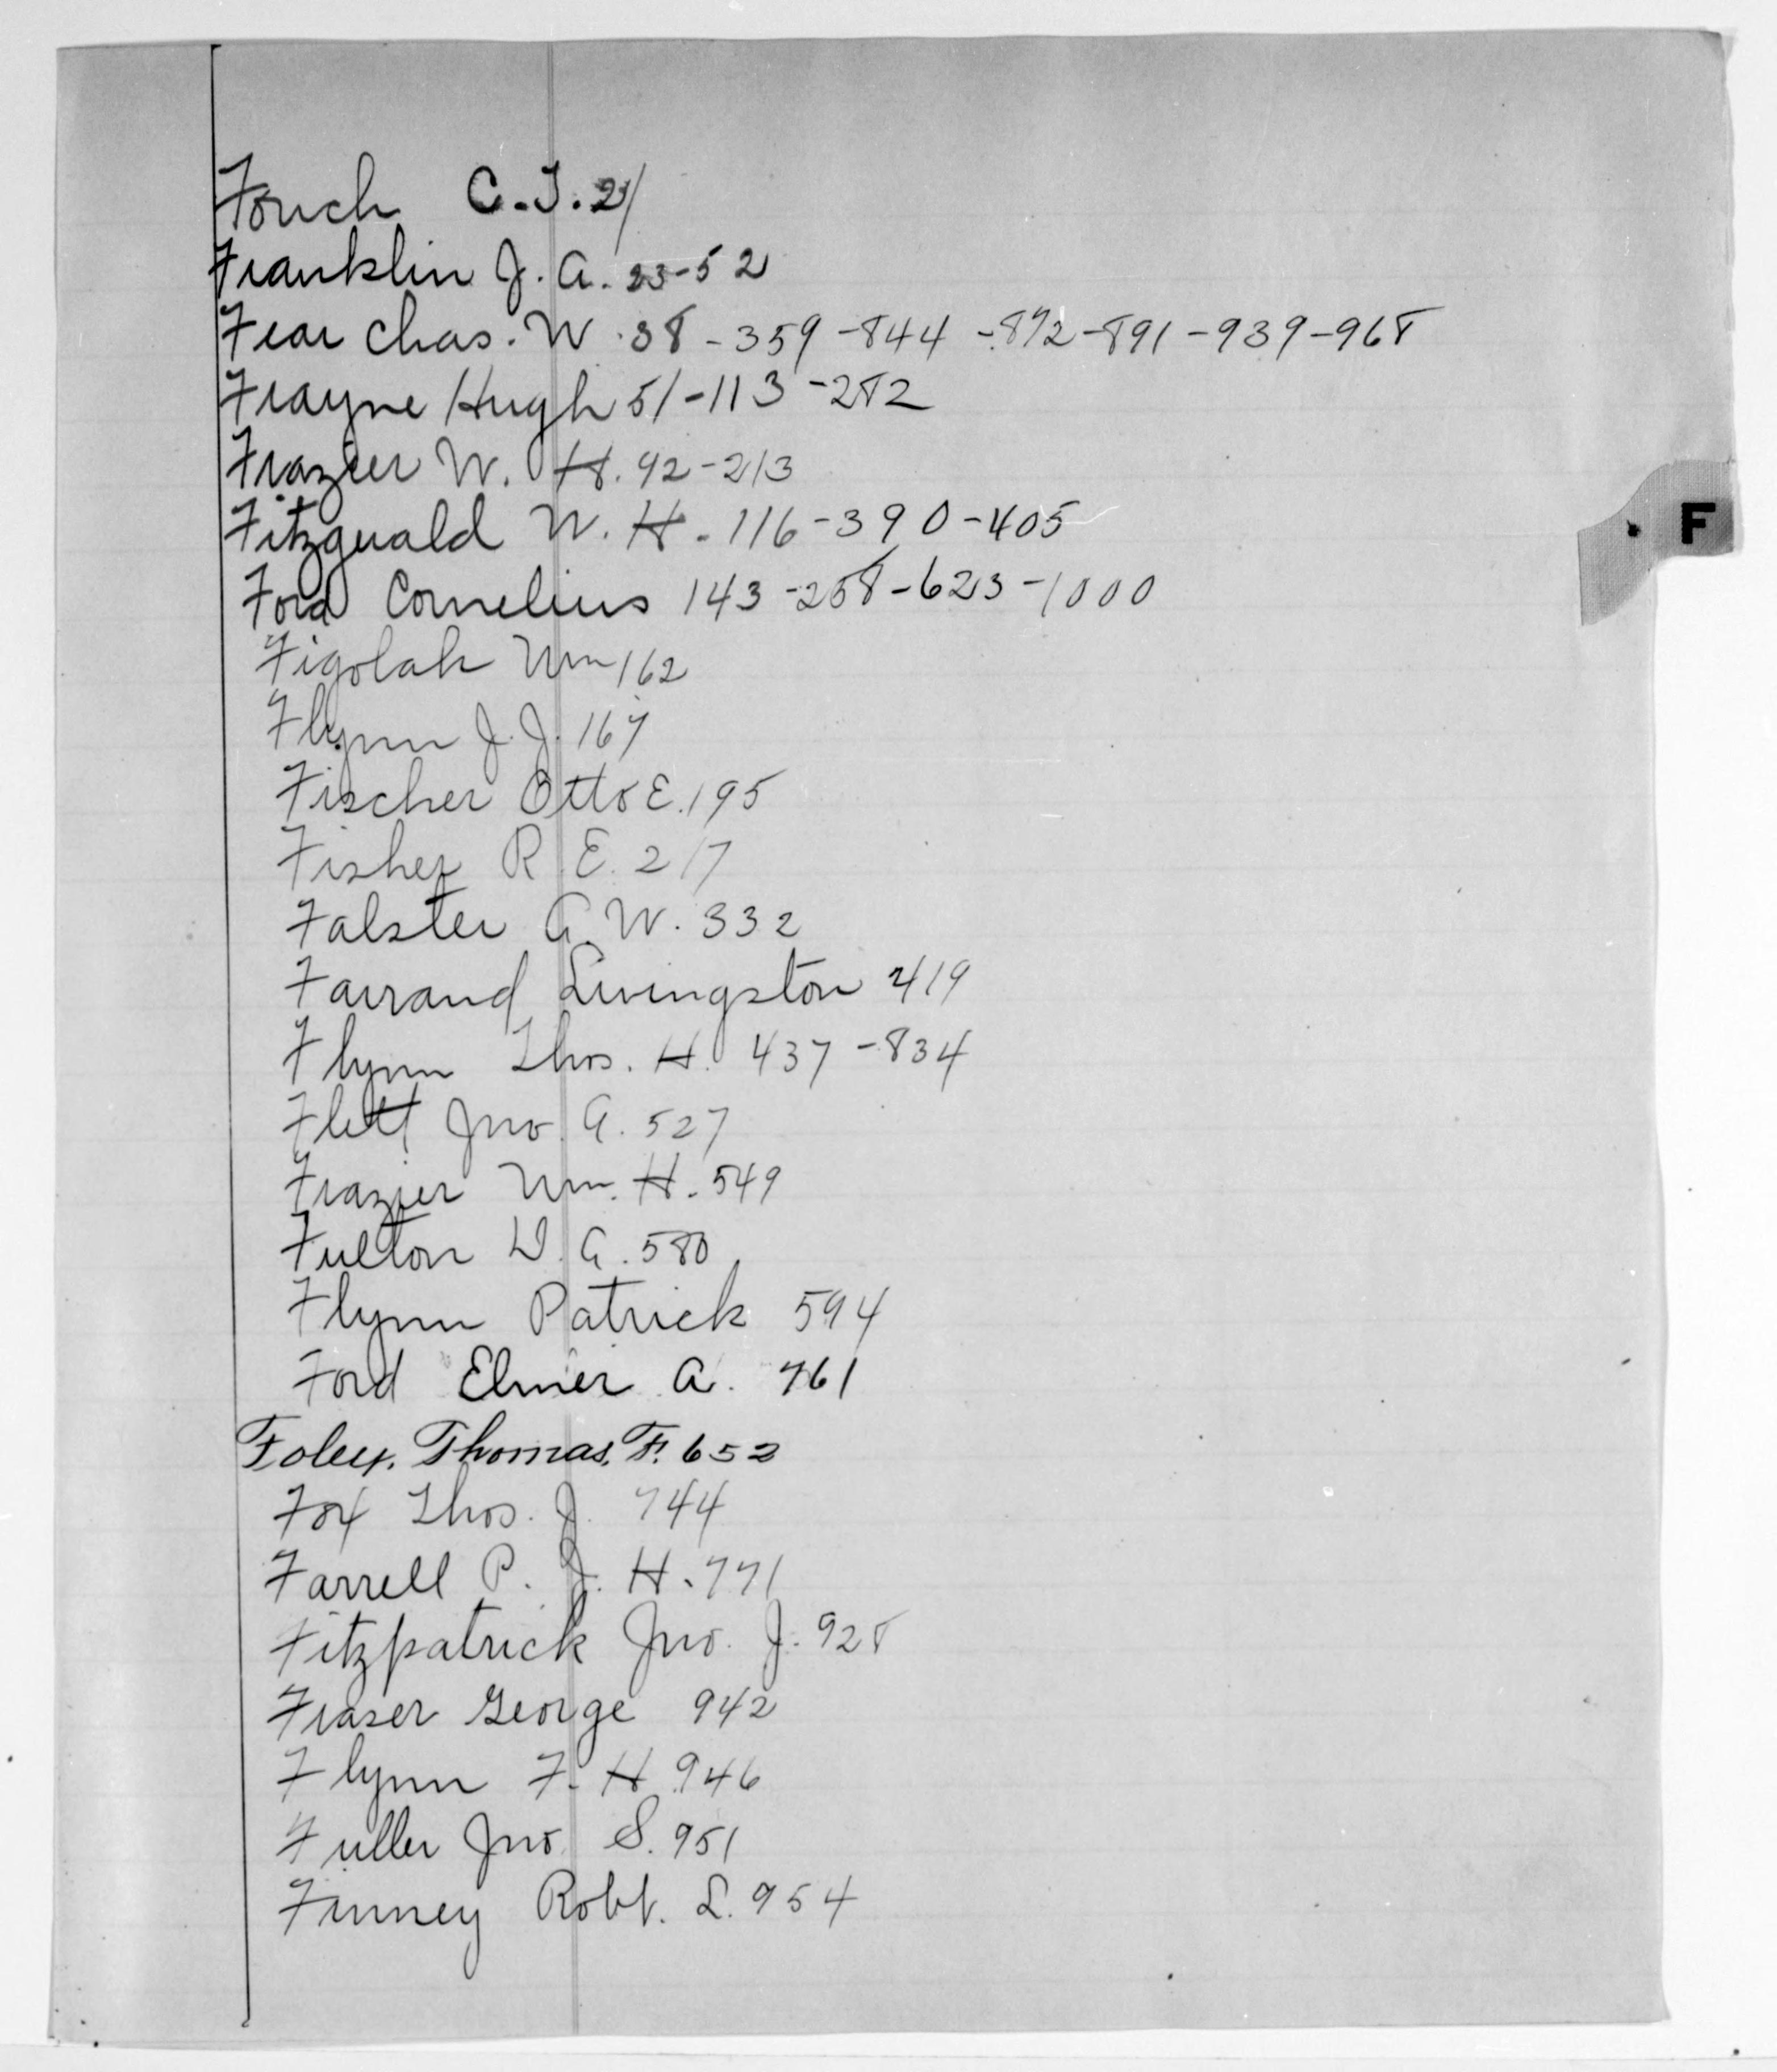 Fouch C. T. 21
Franklin J. A. 23-52
Fear Chas. W. 38-359-844-872-891-939-968
Frayne Hugh 51-113-282
Frazier W. H. 92-213
Fitzgerald W. H. 116-390-405
F
Ford Cornelius 143-258-623-1000
Figolah Wm 162
Flynn J. J. 167
Fischer Otto E. 195
Fisher R. E. 217
Falster A. W. 332
Farrand Livingston 419
Flynn Thos. H. 437-834
Flett Jno. A. 527
Frazier Wm. H. 549
Fulton D. A. 580
Flynn Patrick 594
Ford Elmer A. 761
Foley, Thomas, F. 652
Fox Thos. J. 744
Farrell P. J. H. 771
Fitzpatrick Jno. J. 928
Fraser George 942
Flynn F. H. 946
Fuller Jno. S. 951
Finney Robt. L. 954